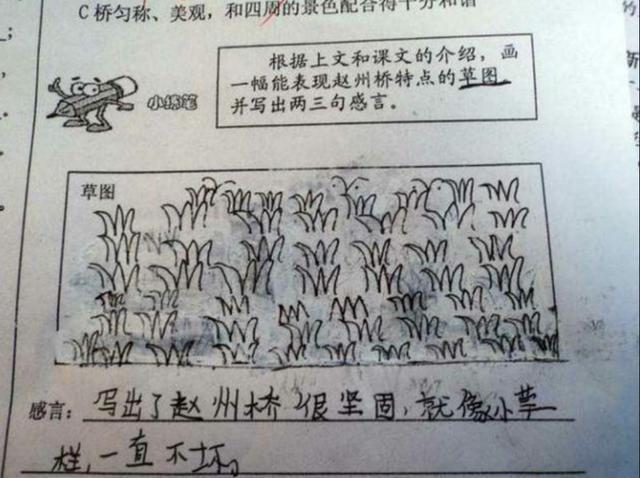 C桥匀称、美观，和四周的景色配合得十分和谐
根据上文和课文的介绍，画
一幅能表现赵州桥特点的草图，
并写出两三句感言。
小练笔
草图
感言：写出了赵州桥很坚固，就像小草一
样，一直不坏。